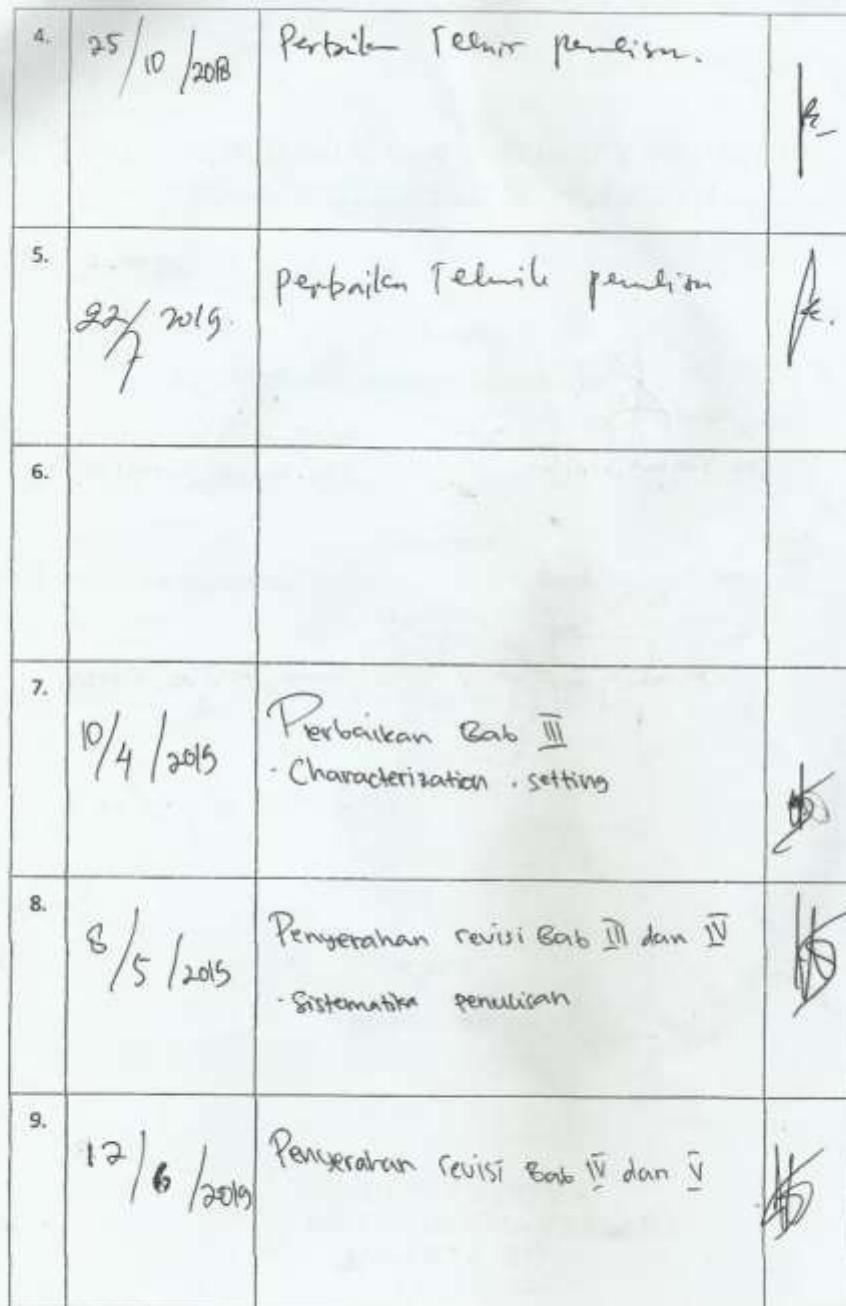 4.
25/10/2018
Perbaikan Teknik penulisan.
5.
22/7 2019.
perbaikan Teknik penulisan
6.
7.
10/4/2019
Perbaikan Bab III
· Characterization · setting
8.
8/5/2019
Penyerahan revisi Bab III dan IV
· Sistematika penulisan
9.
12/6/2019
Penyerahan revisi Bab IV dan V